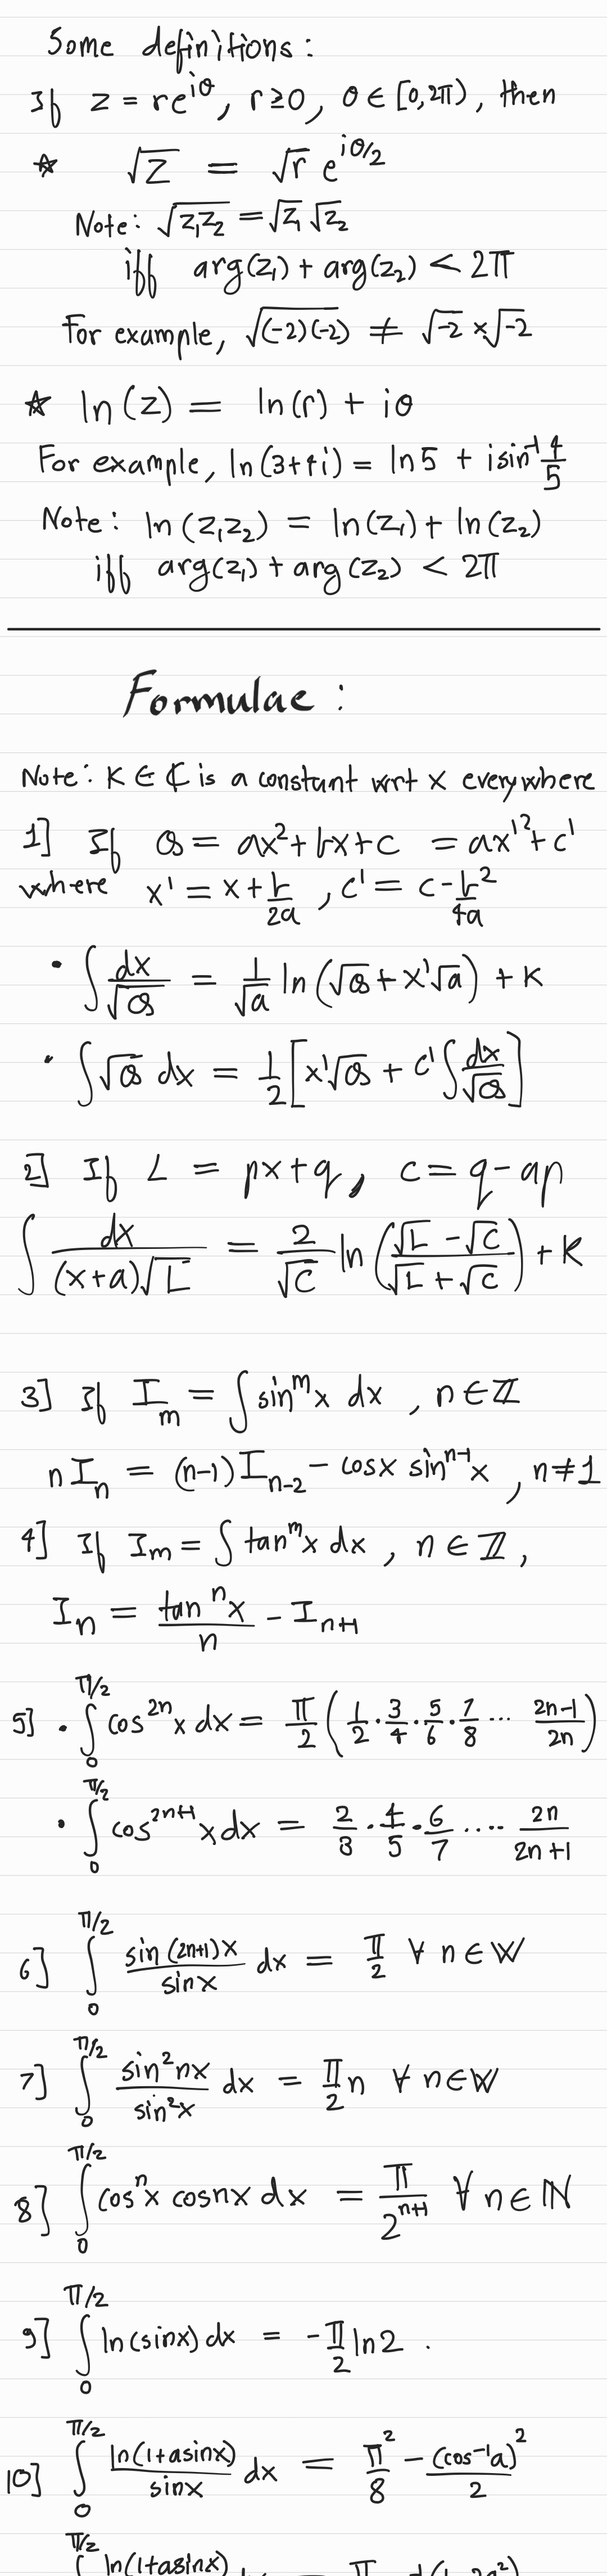 Some definitions :
If z = re^{iθ}, r ≥ 0, θ ∈ [0, 2π), then
☆ √z = √r e^{iθ/2}
Note: √(z₁z₂) = √z₁ √z₂
iff arg(z₁) + arg(z₂) < 2π
For example, √((-2)(-2)) ≠ √-2 × √-2
☆ ln(z) = ln(r) + iθ
For example, ln(3+4i) = ln5 + i sin⁻¹ 4/5
Note: ln(z₁z₂) = ln(z₁) + ln(z₂)
iff arg(z₁) + arg(z₂) < 2π
Formulae :
Note: K ∈ ℂ is a constant wrt x everywhere
1] If Q = ax² + bx + c = ax'² + c'
where x' = x + b/2a , c' = c - b²/4a
• ∫ dx/√Q = 1/√a ln(√Q + x'√a) + K
• ∫ √Q dx = 1/2 [x'√Q + c' ∫ dx/√Q]
2] If L = px + q, c = q - ap
∫ dx/((x+a)√L) = 2/√c ln((√L - √c)/(√L + √c)) + K
3] If I_m = ∫ sin^m x dx , n ∈ ℤ
n I_n = (n-1) I_{n-2} - cosx sin^{n-1} x , n ≠ 1
4] If I_m = ∫ tan^m x dx , n ∈ ℤ ,
I_n = tan^n x / n - I_{n+1}
5] • ∫₀^{π/2} cos^{2n} x dx = π/2 (1/2 · 3/4 · 5/6 · 7/8 ... (2n-1)/2n)
• ∫₀^{π/2} cos^{2n+1} x dx = 2/3 · 4/5 · 6/7 ..... 2n/(2n+1)
6] ∫₀^{π/2} sin(2n+1)x / sinx dx = π/2 ∀ n ∈ W
7] ∫₀^{π/2} sin²nx / sin²x dx = π/2 n ∀ n ∈ W
8] ∫₀^{π/2} cos^n x cosnx dx = π/2^{n+1} ∀ n ∈ ℕ
9] ∫₀^{π/2} ln(sinx) dx = -π/2 ln2 .
10] ∫₀^{π/2} ln(1+asinx)/sinx dx = π²/8 - (cos⁻¹a)²/2
π/2 ln(1+asinx)